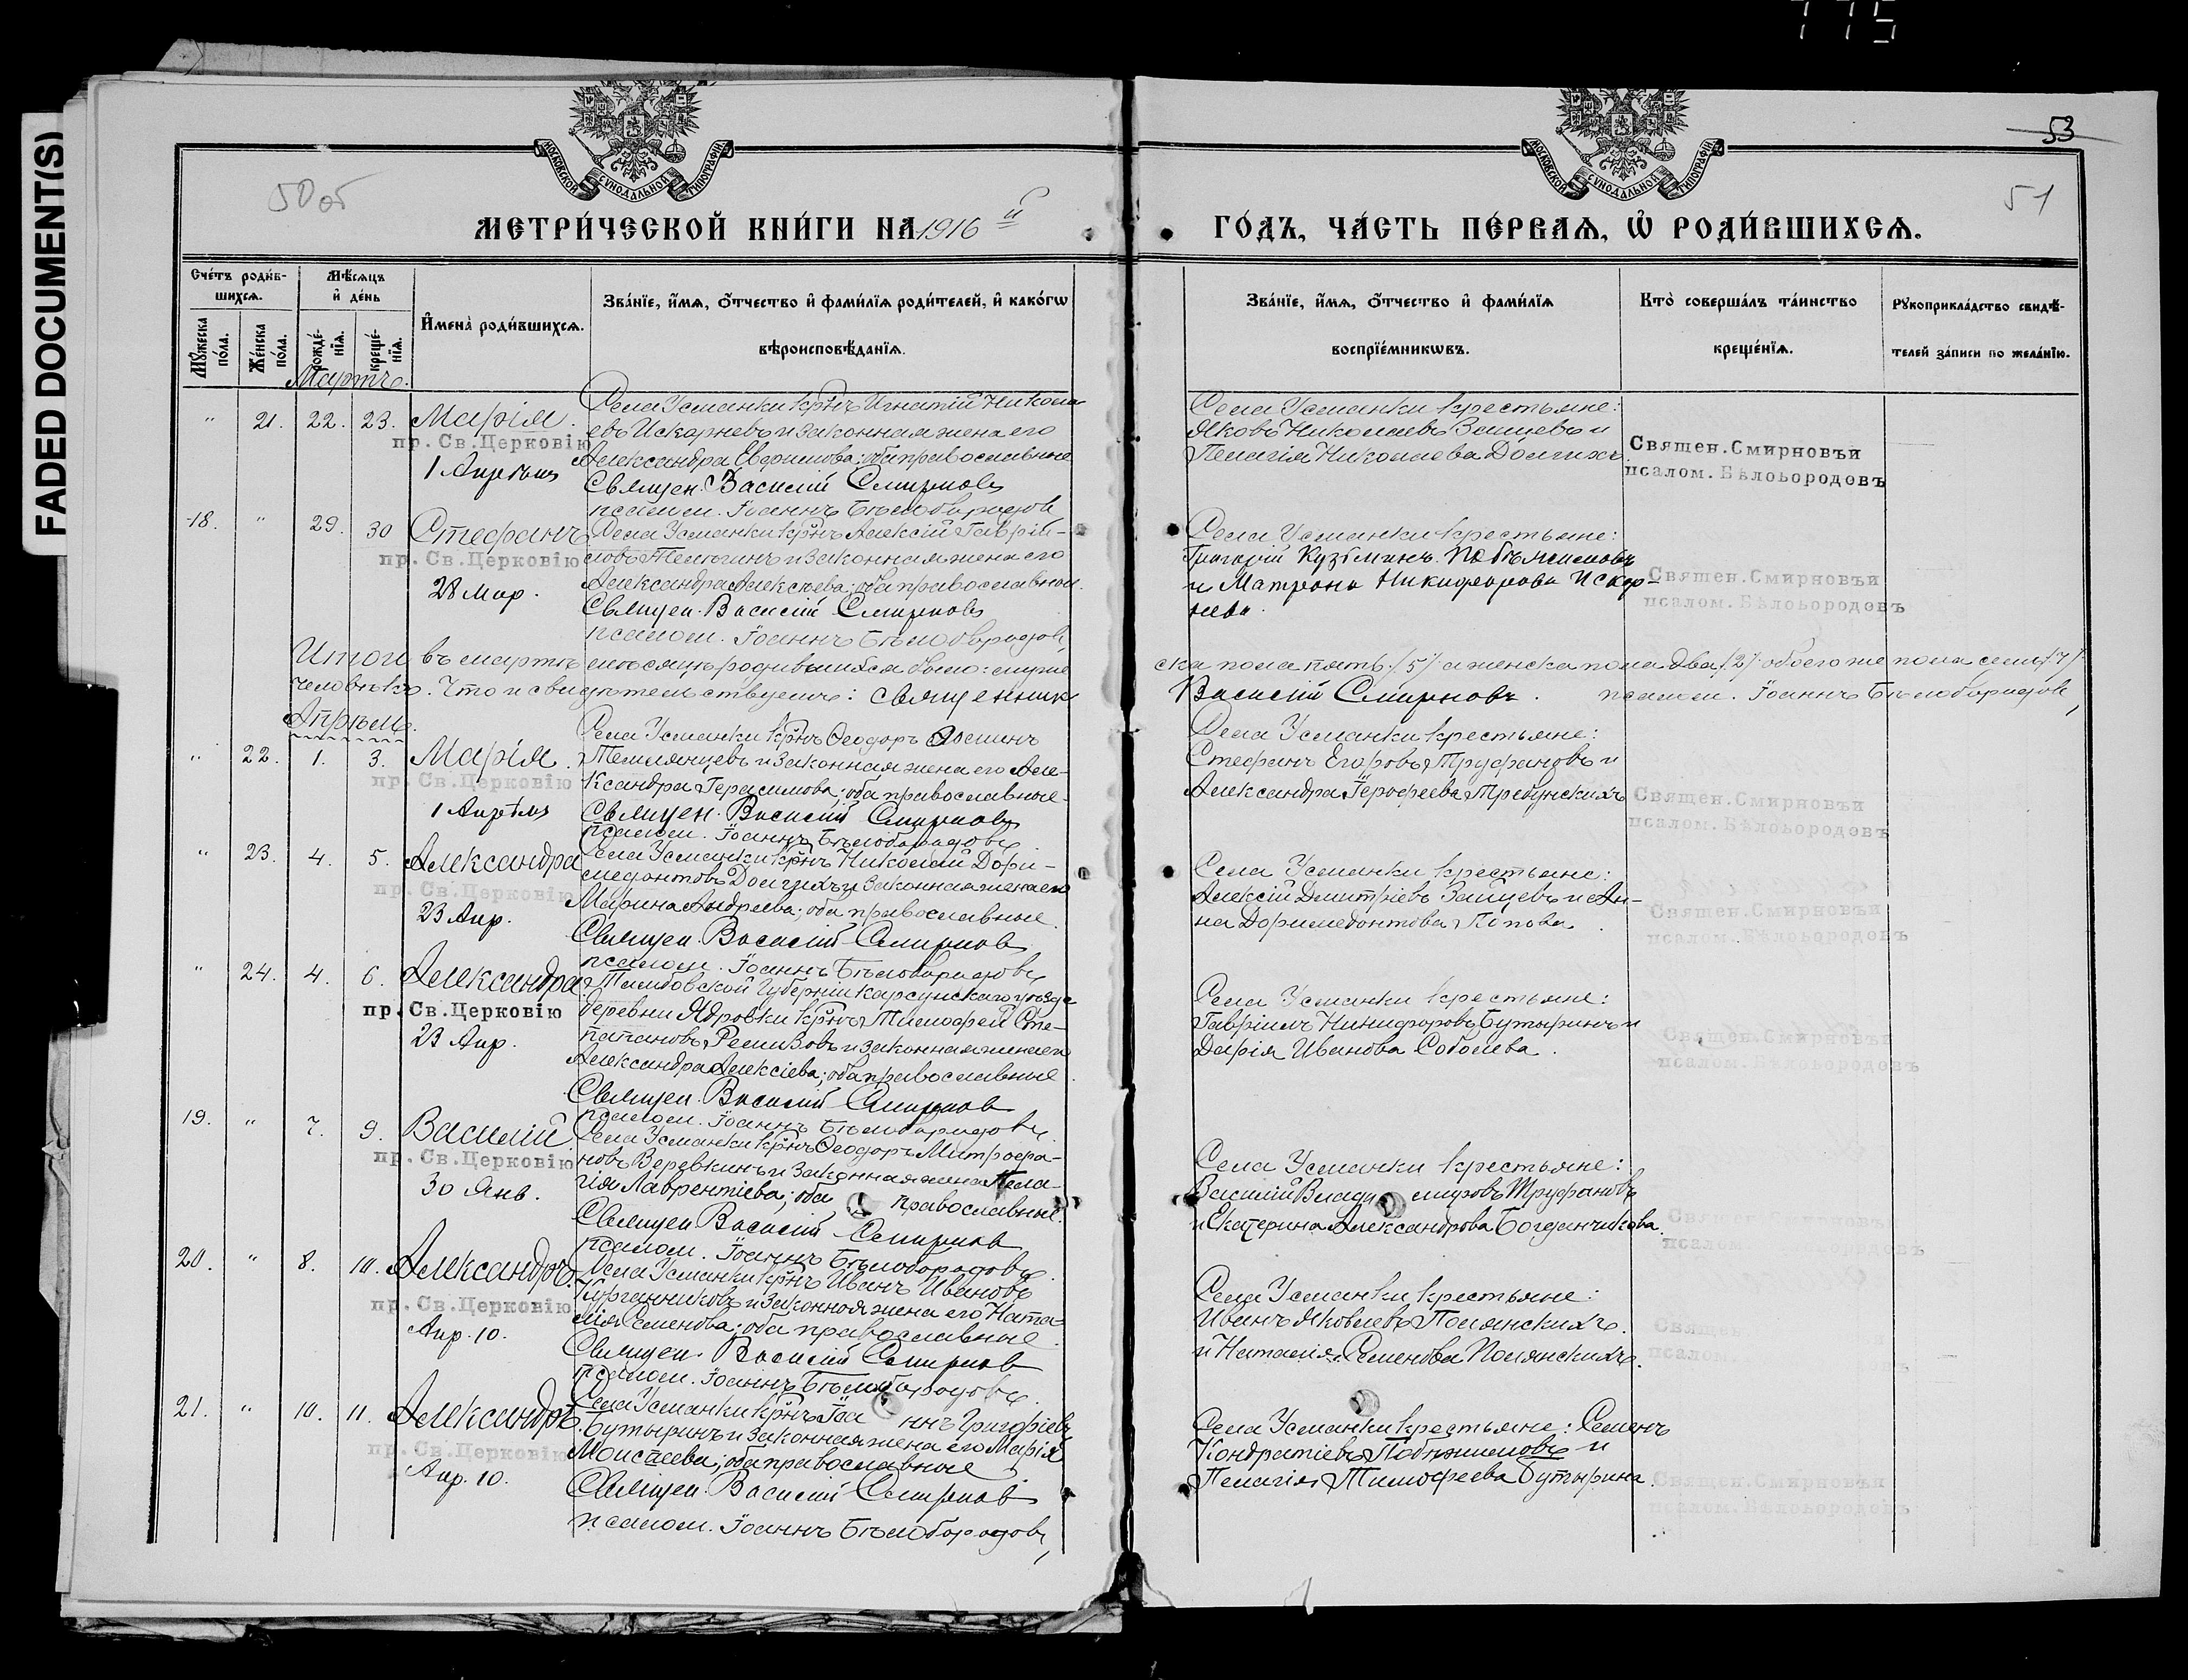 775
FADED DOCUMENT(S)
МОСКОВСКОЙ СѴНОДАЛЬНОЙ ТИПОГРАФІИ
МОСКОВСКОЙ СѴНОДАЛЬНОЙ ТИПОГРАФІИ
53
50 об
51
МЕТРИ́ЧЕСКОЙ КНИ́ГИ НА 1916 й
ГО́ДЪ, ЧА́СТЬ ПЕ́РВАѦ, Ѽ РОДИ́ВШИХСѦ.
Сче́тъ роди́в-
шихсѧ.
Мѣ́сѧцъ
и҆ де́нь
Мꙋ́жеска по́ла.
Же́нска по́ла.
рожде́-
нїѧ.
креще́-
нїѧ.
И҆мена̀ роди́вшихсѧ.
Зва́нїе, и҆́мѧ, ѻ҆́тчество и҆ фами́лїѧ роди́телей, и҆ како́гѡ
вѣроисповѣ́данїѧ.
Зва́нїе, и҆́мѧ, ѻ҆́тчество и҆ фами́лїѧ
воспрїе́мникѡвъ.
Кто̀ соверша́лъ та́инство
креще́нїѧ.
Рꙋкоприкла́дство свидѣ́-
телей за́писи по жела́нїю.
Мартъ.
" 21. 22. 23. Марія.
пр. Св. Церковію
1 Апрѣля
Села Усманки кр̃нъ Игнатій Никола
евъ Искорневъ и законная жена его
Александра; оба православные
Священ. Василій Смирновъ
псалом. Іоаннъ Бѣлобородовъ
Села Усманки крестьяне:
Яковъ Николаевъ Зайцевъ и
Пелагія Николаева Долгихъ
Священ. Смирновъи
псалом. Бѣлоьородовъ
18. " 29. 30 Стефанъ
пр. Св. Церковію
28 Мар.
Села Усманки кр̃нъ Алексій Гаврій-
ловъ и законная жена его
Александра Алексѣева; оба православные.
Священ. Василій Смирновъ
псалом. Іоаннъ Бѣлобородовъ
Села Усманки крестьяне:
Григорій Кузьминъ Побѣжимовъ
и Матрона Никифорова Искор-
нева.
Священ. Смирновъи
псалом. Бѣлоьородовъ
Итого въ мартѣ мѣсяцѣ родившихся было: муже
ска пола пять /5/ а женска пола два /2/ обоего же пола семь /7/
человѣкъ. Что и свидѣтельствуемъ: священникъ
Василій Смирновъ. псалом. Іоаннъ Бѣлобородовъ
Апрѣль.
" 22. 1. 3. Марія.
пр. Св. Церковію
1 Апрѣля
Села Усманки кр̃нъ Ѳеодоръ
и законная жена его Але-
ксандра Герасимова; оба православные.
Священ. Василій Смирновъ
псалом. Іоаннъ Бѣлобородовъ
Села Усманки крестьяне:
Стефанъ Егоровъ Труфановъ и
Александра Герофеева Требунскихъ
Священ. Смирновъи
псалом. Бѣлоьородовъ
" 23. 4. 5. Александра
пр. Св. Церковію
23 Апр.
Села Усманки кр̃нъ Николай Дори-
медонтовъ Долгихъ и законная жена его
Марина Андреева; оба православные.
Священ. Василій Смирновъ
псалом. Іоаннъ Бѣлобородовъ
Села Усманки крестьяне:
Алексій Дмитріевъ Зайцевъ и Ан-
на Доримедонтова Попова.
Священ. Смирновъи
псалом. Бѣлоьородовъ
" 24. 4. 6. Александра
пр. Св. Церковію
23 Апр.
Тамбовской губерніи карсунскаго уѣзда
деревни Ядровки кр̃нъ Тимофей Сте-
пановъ Ремизовъ и законная жена его
Александра Алексіева; оба православные.
Священ. Василій Смирновъ
псалом. Іоаннъ Бѣлобородовъ
Села Усманки крестьяне:
Гавріилъ Никифоровъ Бутыринъ и
Дарія Иванова Соболева.
Священ. Смирновъи
псалом. Бѣлоьородовъ
19. " 7. 9. Василій
пр. Св. Церковію
30 Янв.
Села Усманки кр̃нъ Ѳеодоръ Митрофа-
новъ Веревкинъ и законная жена Пела-
гія Лаврентіева; оба православные.
Священ. Василій Смирновъ
псалом. Іоаннъ Бѣлобородовъ
Села Усманки крестьяне:
Василій Владимировъ Труфановъ
и Екатерина Александрова Богданчикова.
Священ. Смирновъ
псалом. Бѣлоьородовъ
20. " 8. 10. Александръ.
пр. Св. Церковію
Апр. 10.
Села Усманки кр̃нъ Иванъ Ивановъ
Курганниковъ и законная жена его Ната-
лія Семенова; оба православные.
Священ. Василій Смирновъ
псалом. Іоаннъ Бѣлобородовъ
Села Усманки крестьяне:
Иванъ Яковлевъ Полянскихъ.
и Наталія Семенова Полянскихъ.
Священ.
псалом.
21. " 10. 11. Александръ.
пр. Св. Церковію
Апр. 10.
Села Усманки кр̃нъ Іоаннъ Григоріевъ
Бутыринъ и законная жена его Марія
Моисеева; оба православные.
Священ. Василій Смирновъ
псалом. Іоаннъ Бѣлобородовъ
Села Усманки крестьяне: Семенъ
Кондратіевъ Побѣжимовъ и
Пелагія Тимофеева Бутырина.
Священ. Смирновъи
псалом. Бѣлоьородовъ